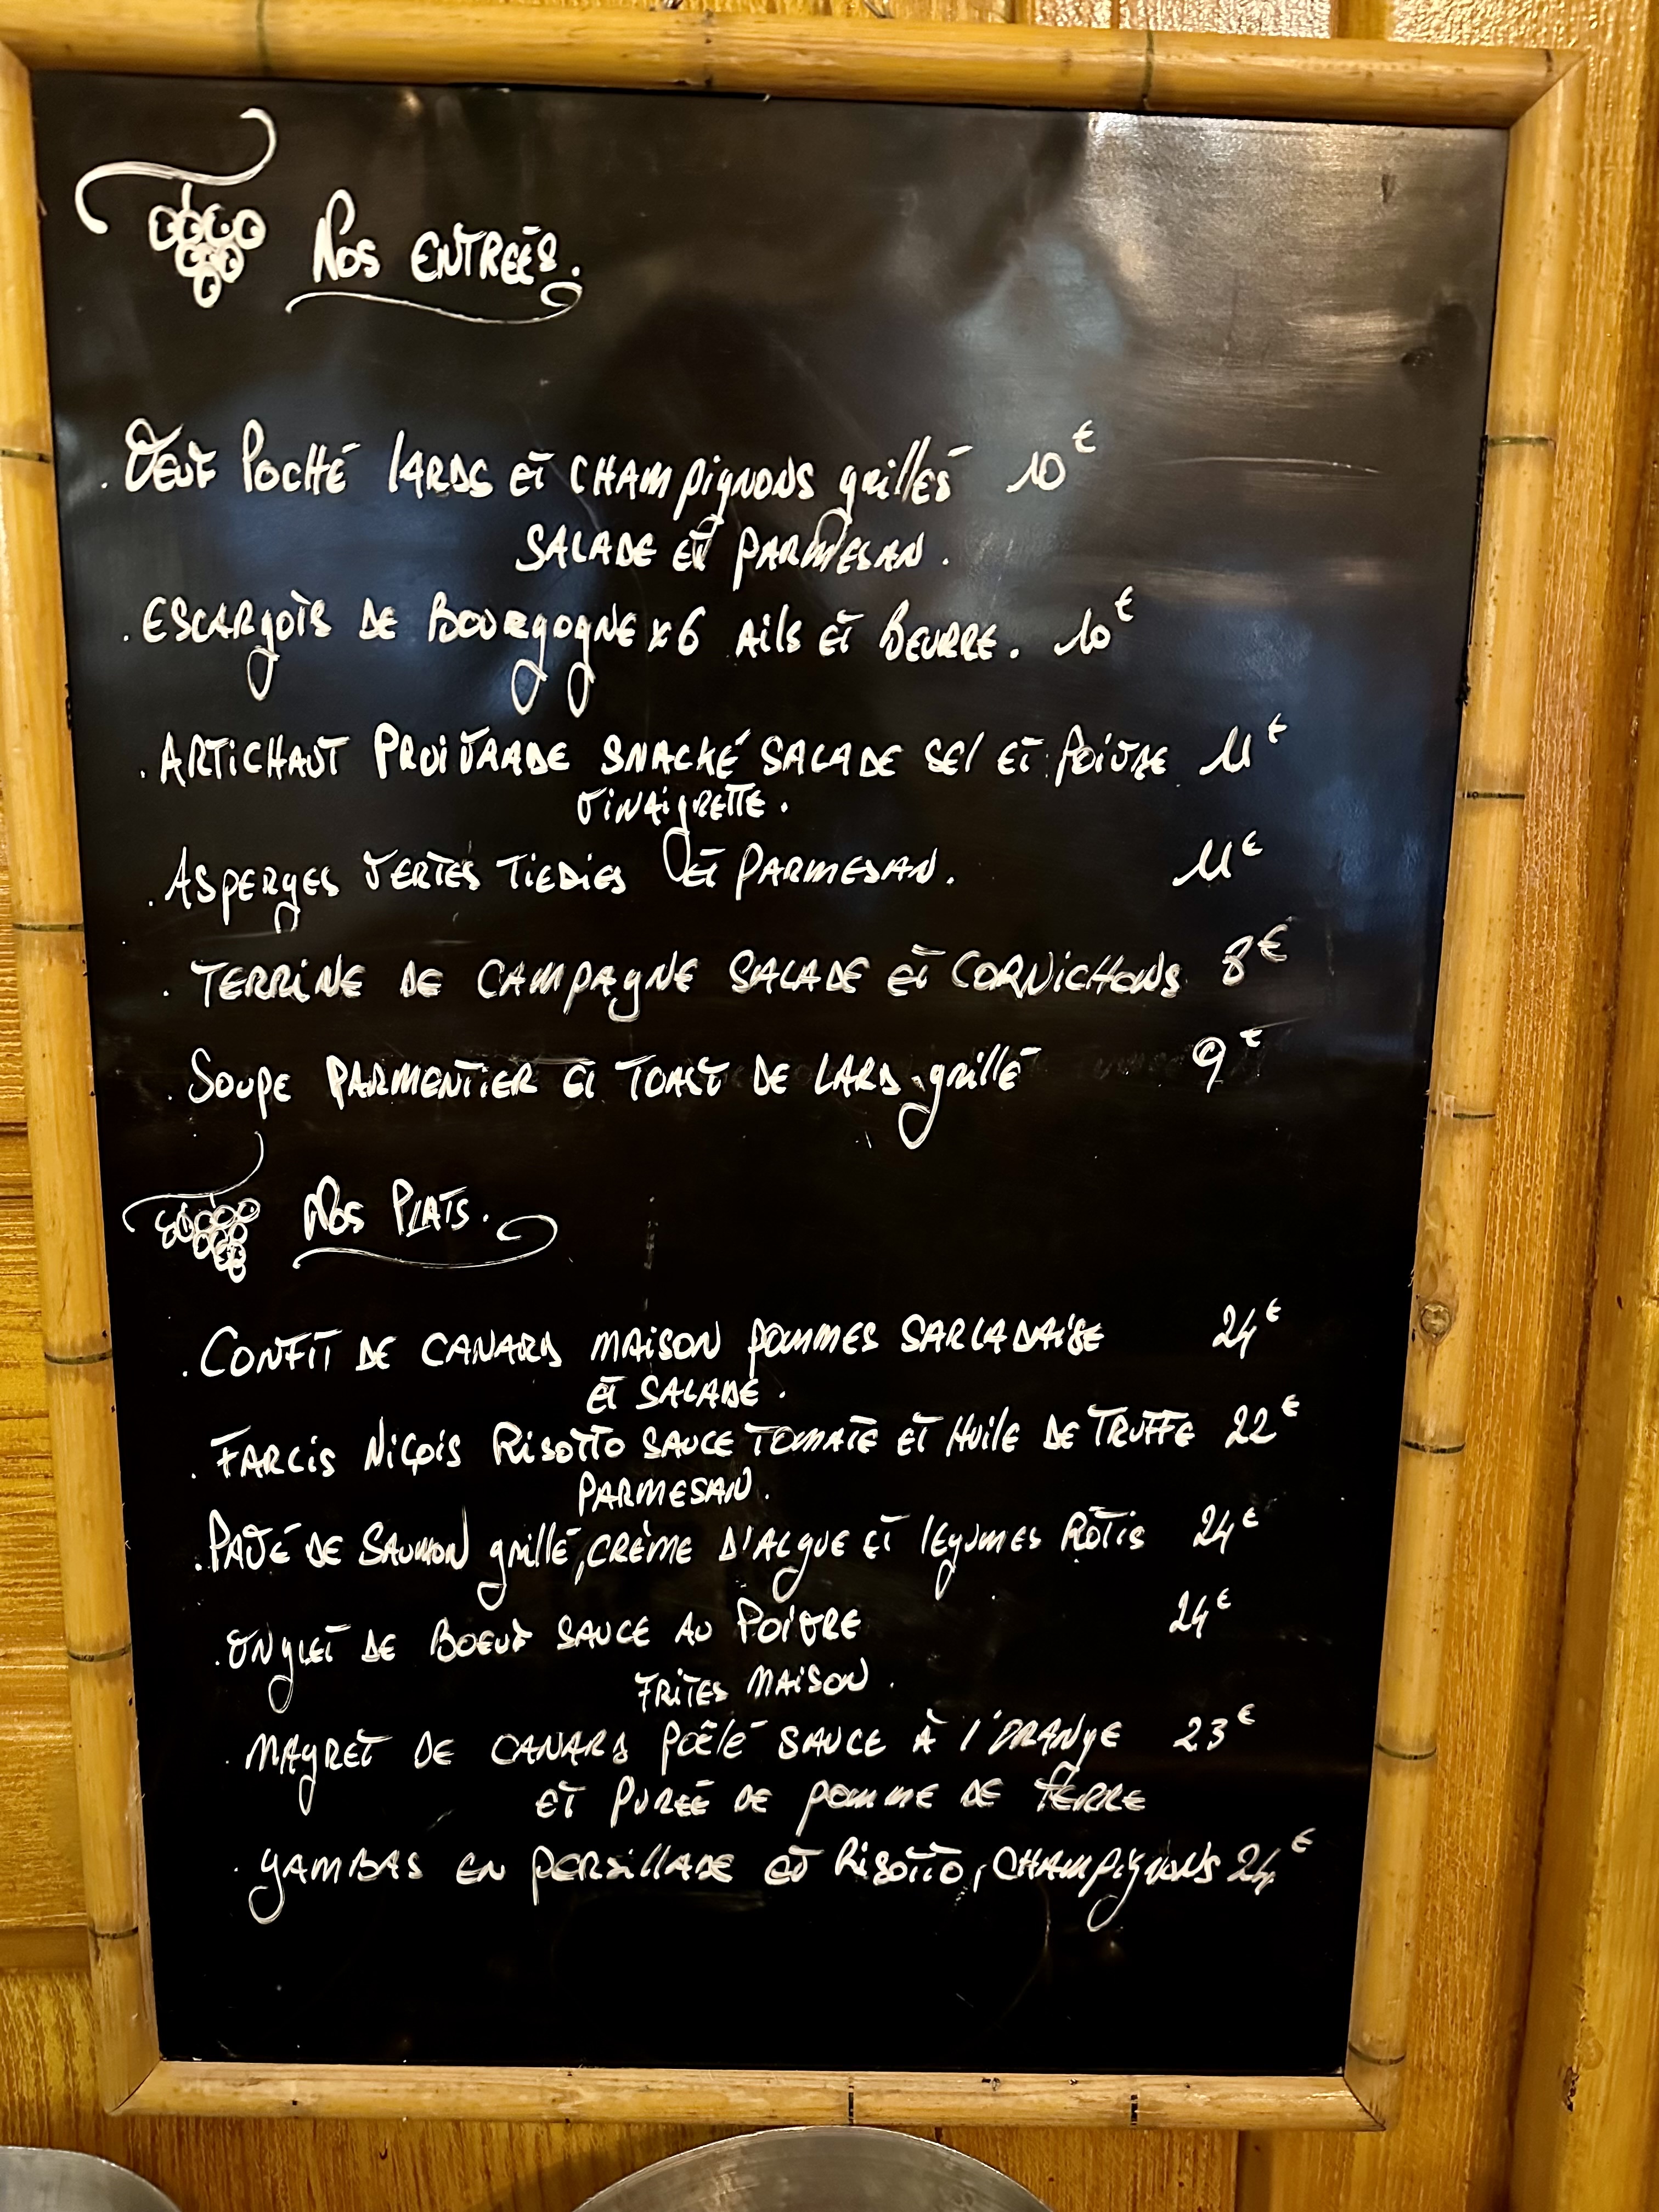 Nos ENTRÉES.
. OEUF POCHÉ LARDS ET CHAMPIGNONS grillés 10€
SALADE ET PARMESAN.
. ESCARGOTS DE BOURGOGNE x6 AILS ET BEURRE. 10€
. ARTICHAUT POIVRADE SNACKÉ SALADE SEL ET POIVRE 11€
VINAIGRETTE.
. ASPERGES VERTES TIEDIES ET PARMESAN. 11€
. TERRINE DE CAMPAGNE SALADE ET CORNICHONS 8€
. SOUPE PARMENTIER ET TOAST DE LARD grillé 9€
Nos PLATS.
. CONFIT DE CANARD MAISON POMMES SARLADAISE 24€
ET SALADE.
. FARCIS NIÇOIS RISOTTO SAUCE TOMATE ET HUILE DE TRUFFE 22€
PARMESAN.
. PAVÉ DE SAUMON grillé, CRÈME D'ALGUE ET LEGUMES RÔTIS 24€
. ONGLET DE BOEUF SAUCE AU POIVRE 24€
FRITES MAISON.
. MAGRET DE CANARD POÊLÉ SAUCE À L'ORANGE 23€
ET PURÉE DE POMME DE TERRE
. GAMBAS EN PERSILLADE ET RISOTTO, CHAMPIGNONS 24€